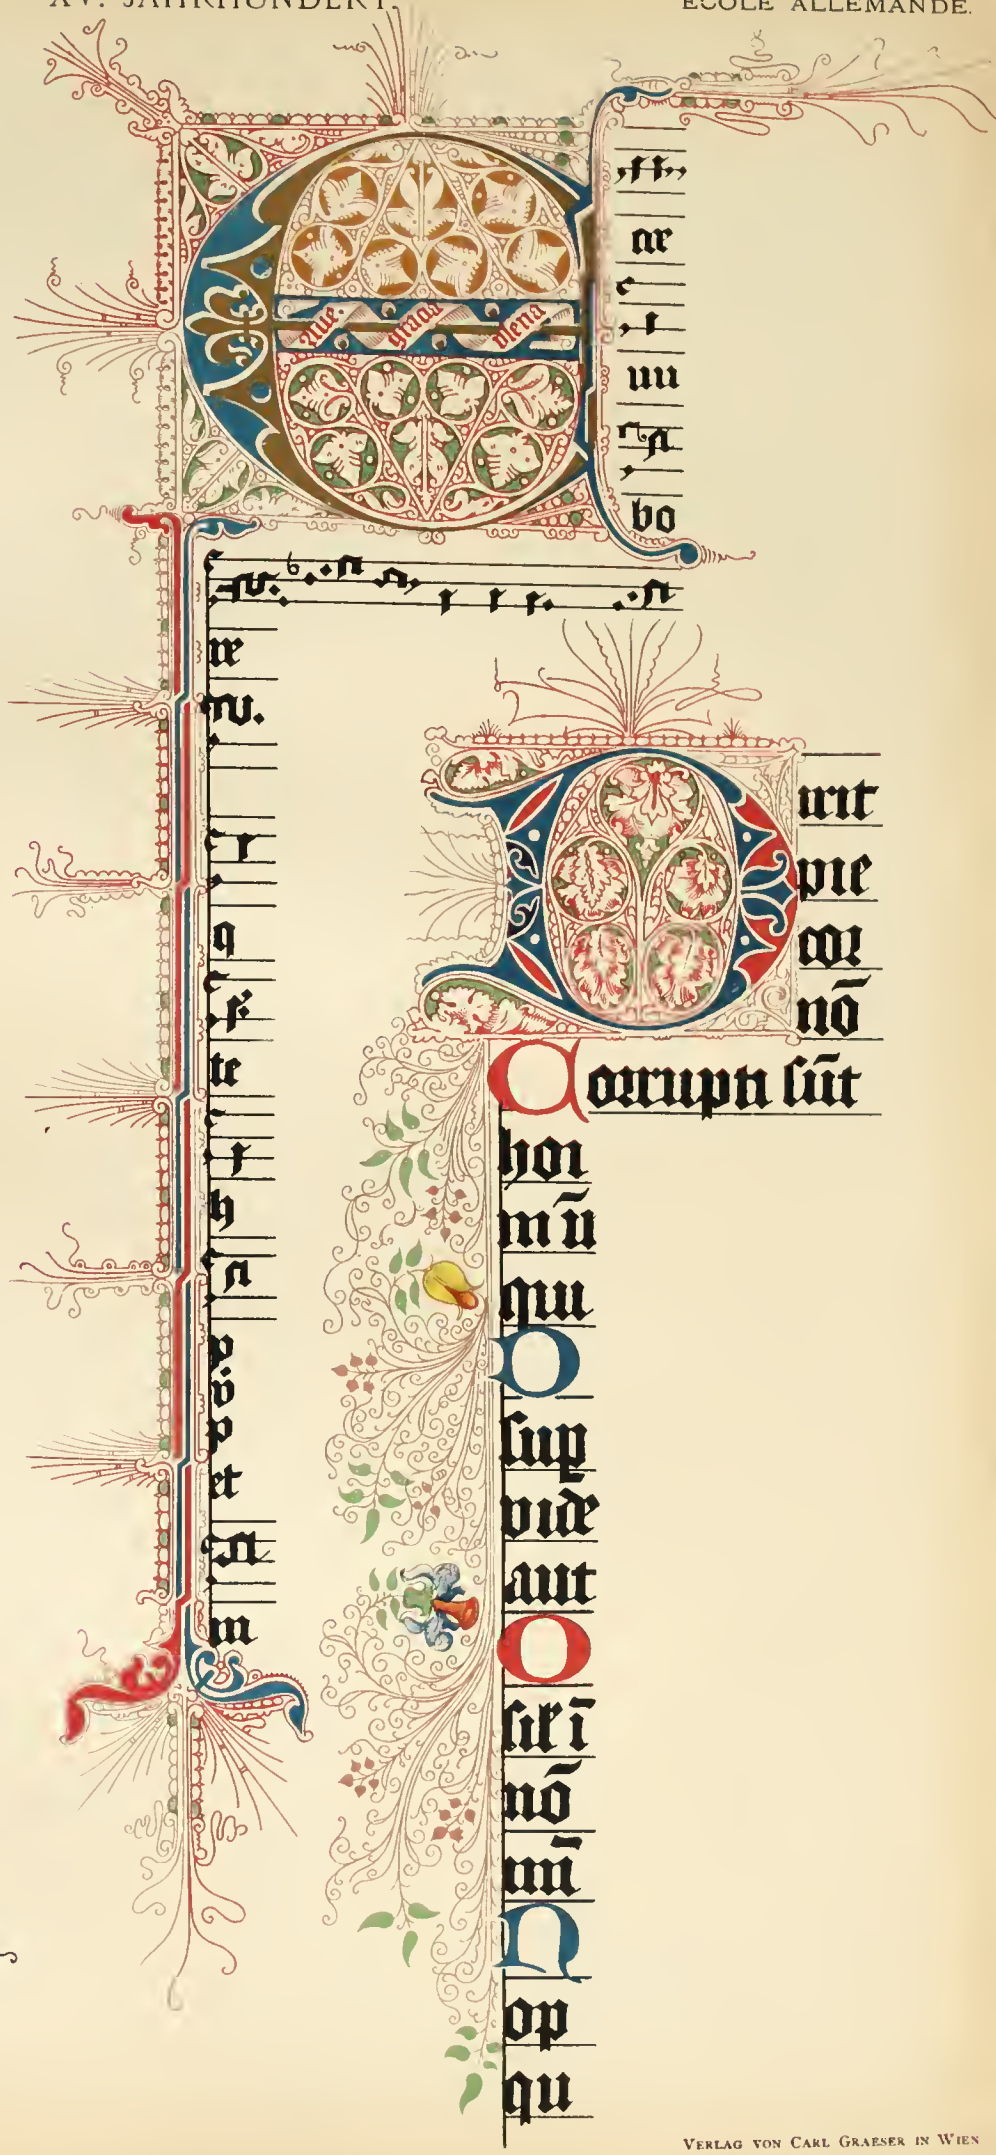 XV. JAHRHUNDERT.
ÉCOLE ALLEMANDE.
Aue gracia plena
ar
uu
bo
re
q
te
h
p
v
p
et
m
D
irit
pie
cor
nō
Corrupti sūt
hoı
mū
qui
D
sup
vide
aut
O
nō
N
op
qu
VERLAG VON CARL GRAESER IN WIEN